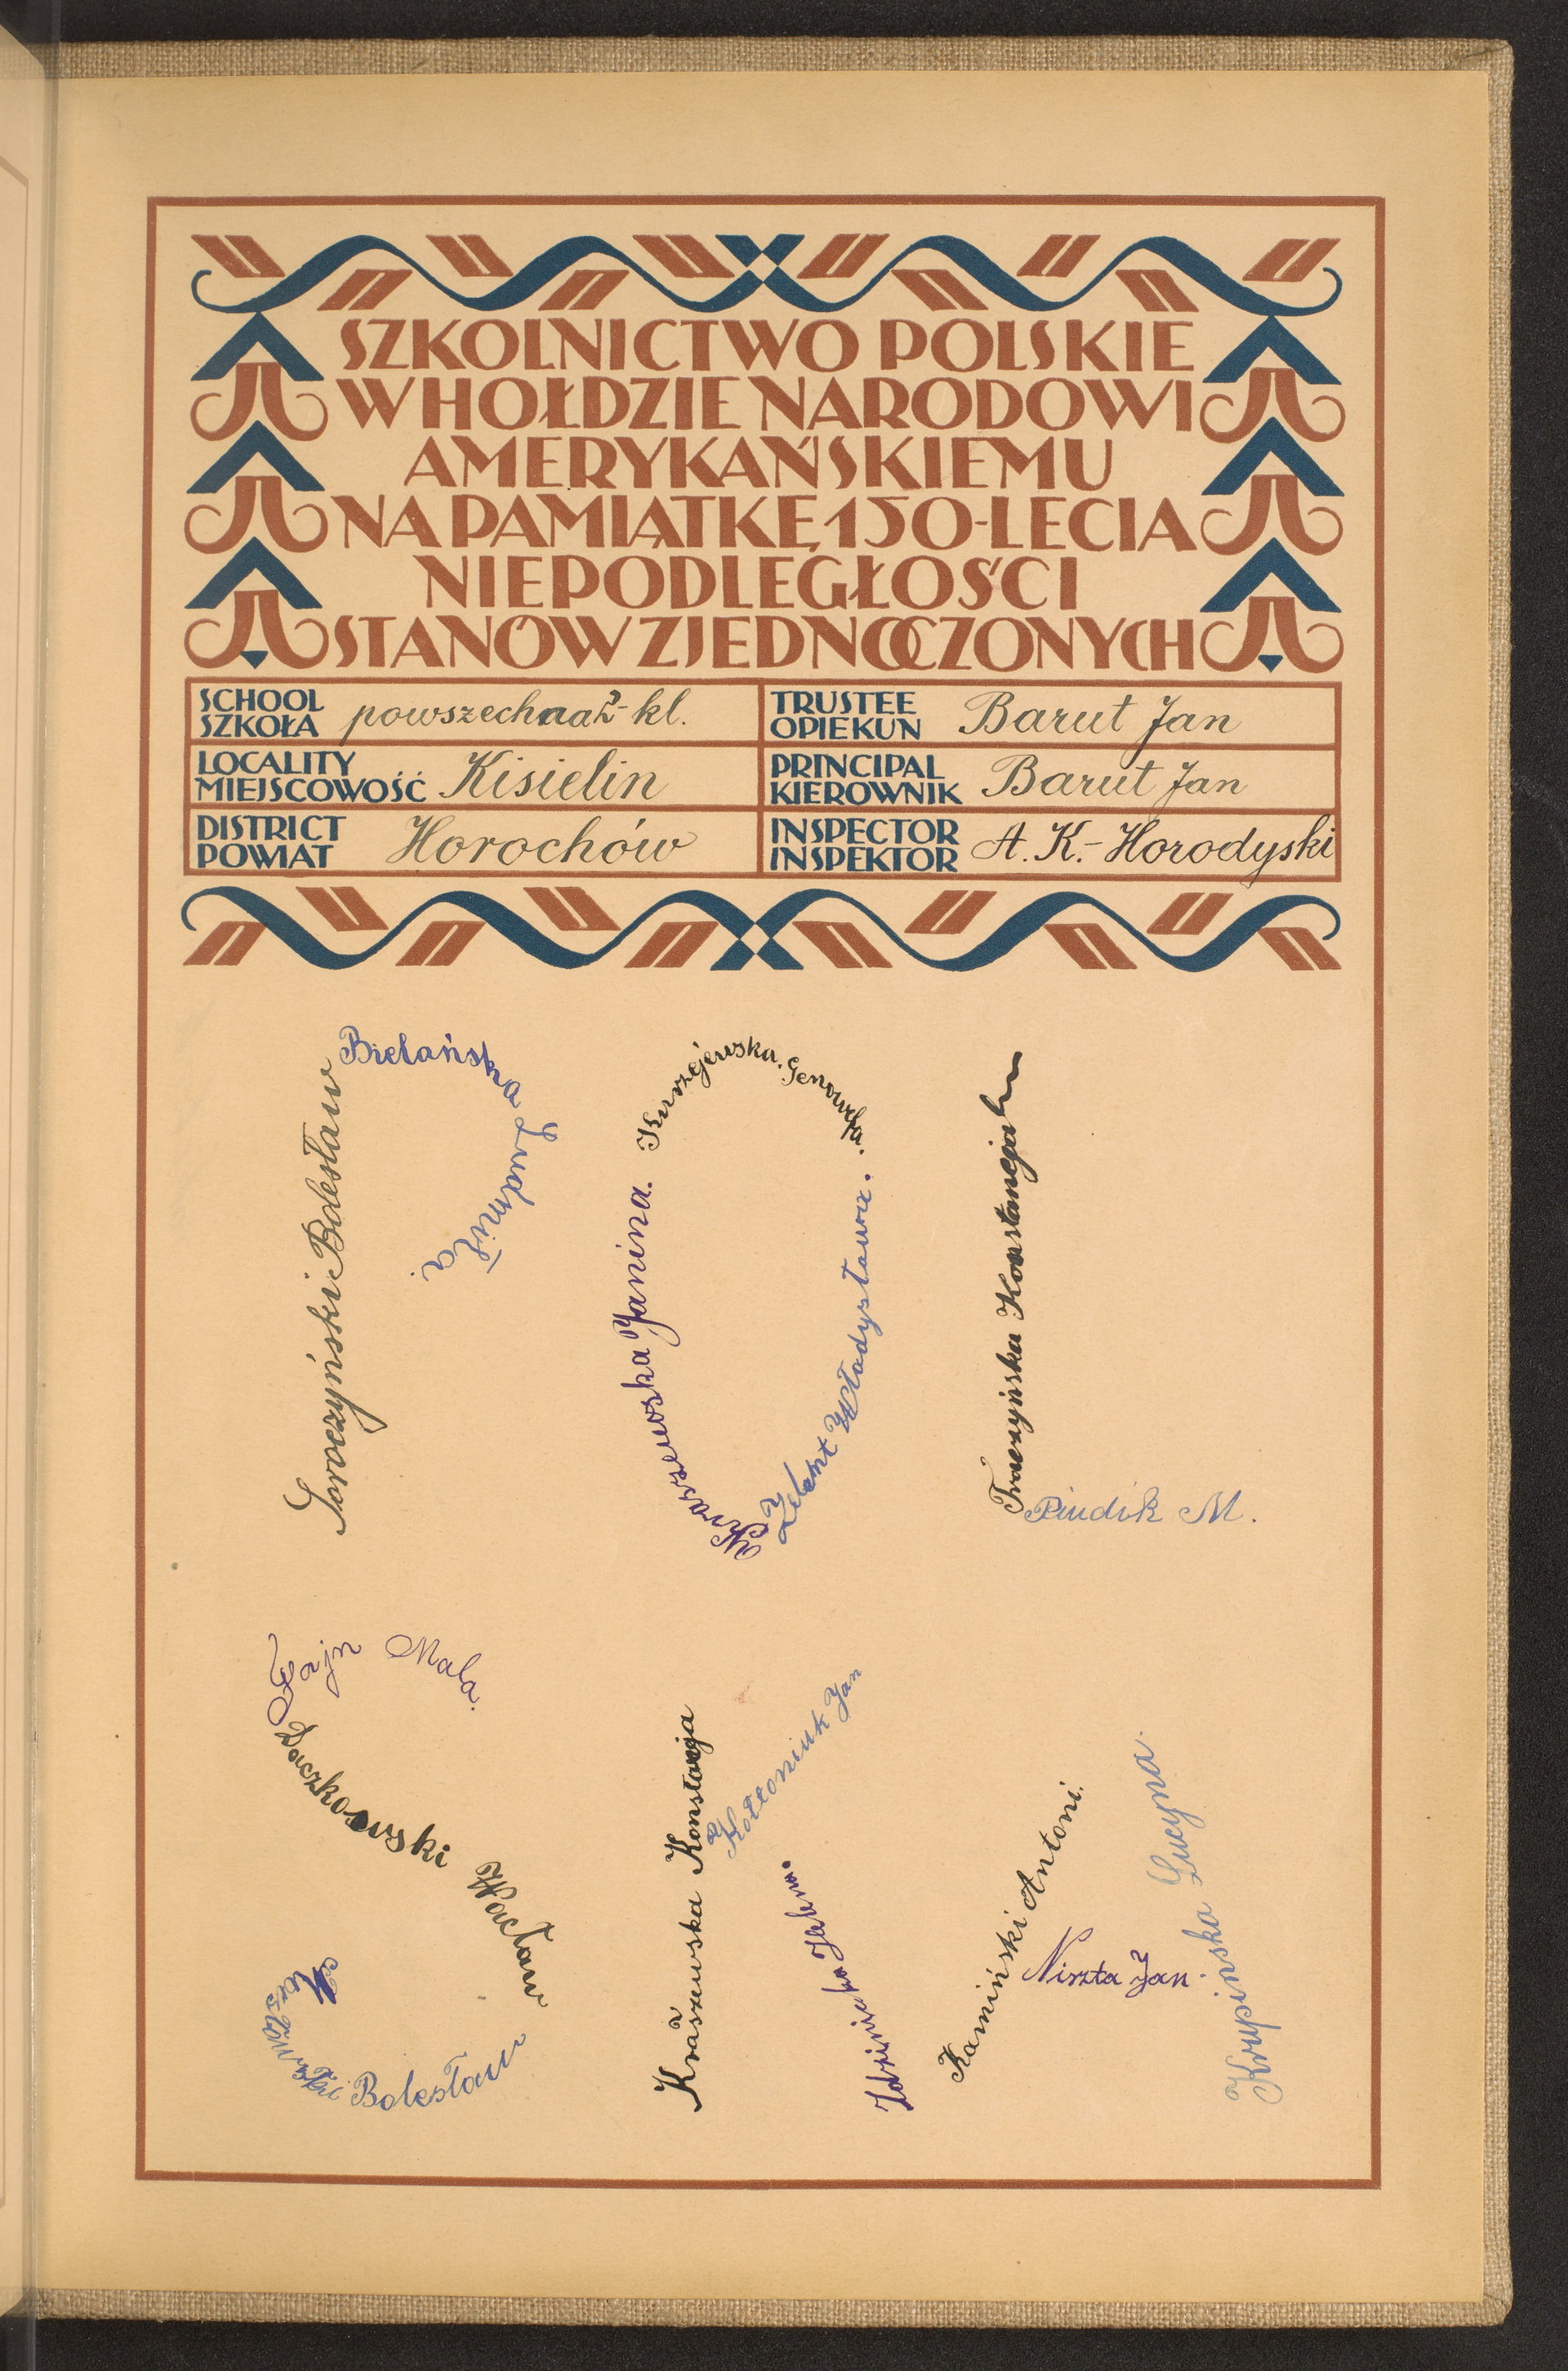 SZKOLNICTWO POLSKIE
W HOŁDZIE NARODOWI
AMERYKAŃSKIEMU
NA PAMIĄTKĘ 150-LECIA
NIEPODLEGŁOŚCI
STANÓW ZJEDNOCZONYCH
SCHOOL
SZKOŁA powszechna 2-kl.
TRUSTEE
OPIEKUN Barut Jan
LOCALITY
MIEJSCOWOŚĆ Kisielin
PRINCIPAL
KIEROWNIK Barut Jan
DISTRICT
POWIAT Horochów
INSPECTOR
INSPEKTOR A. K.-Horodyski
Soroczyński Bolesław
Bielańska Ludmiła.
Kraszewska Janina.
Kurzejewska. Genowefa.
Żeleszt Władysława.
Konstancja
Piudik M.
Fajn Mala.
Boczkowski Wacław
Bolesław
Kraszewska Konstancja
Kołtoniuk Jan
Kamiński Antoni.
Niszta Jan.
Krupińska Lucyna.